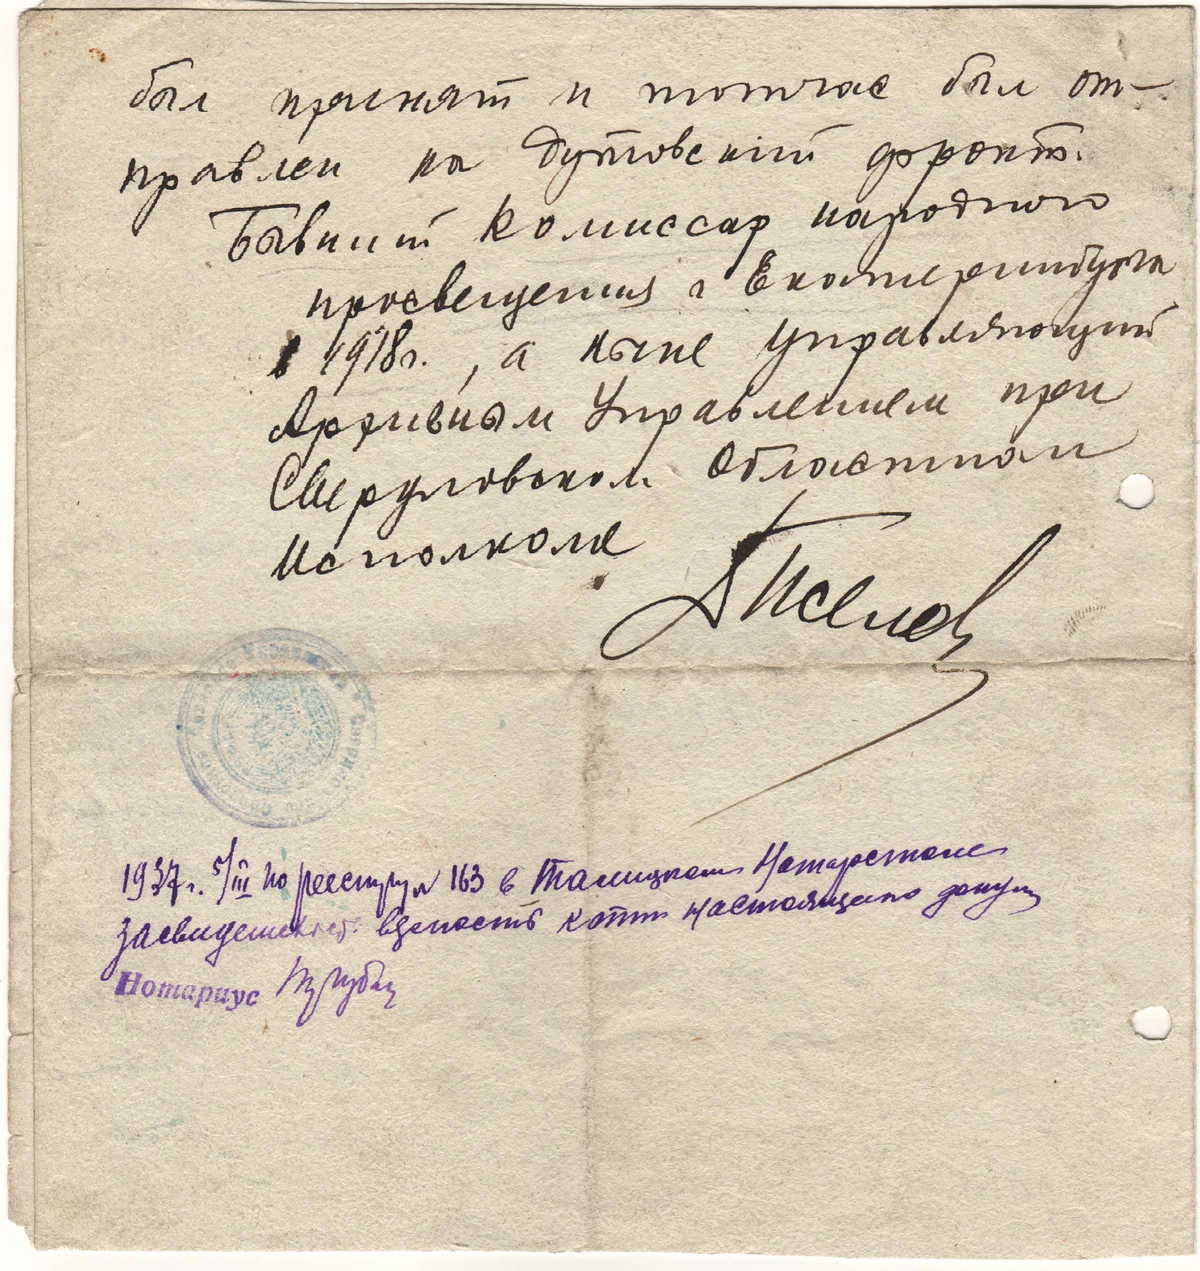 был принят и тотчас был от-
правлен на Дутовский фронт.
Бывший Комиссар народного
просвещения г Екатеринбурга
в 1918 г., а ныне Управляющий
Архивным Управлением при
Свердловском Областном
Исполкоме
1937 г. 5/III по реестру 163 в Талицком Нотарстоле
засвидет. верность копии настоящего докум
Нотариус